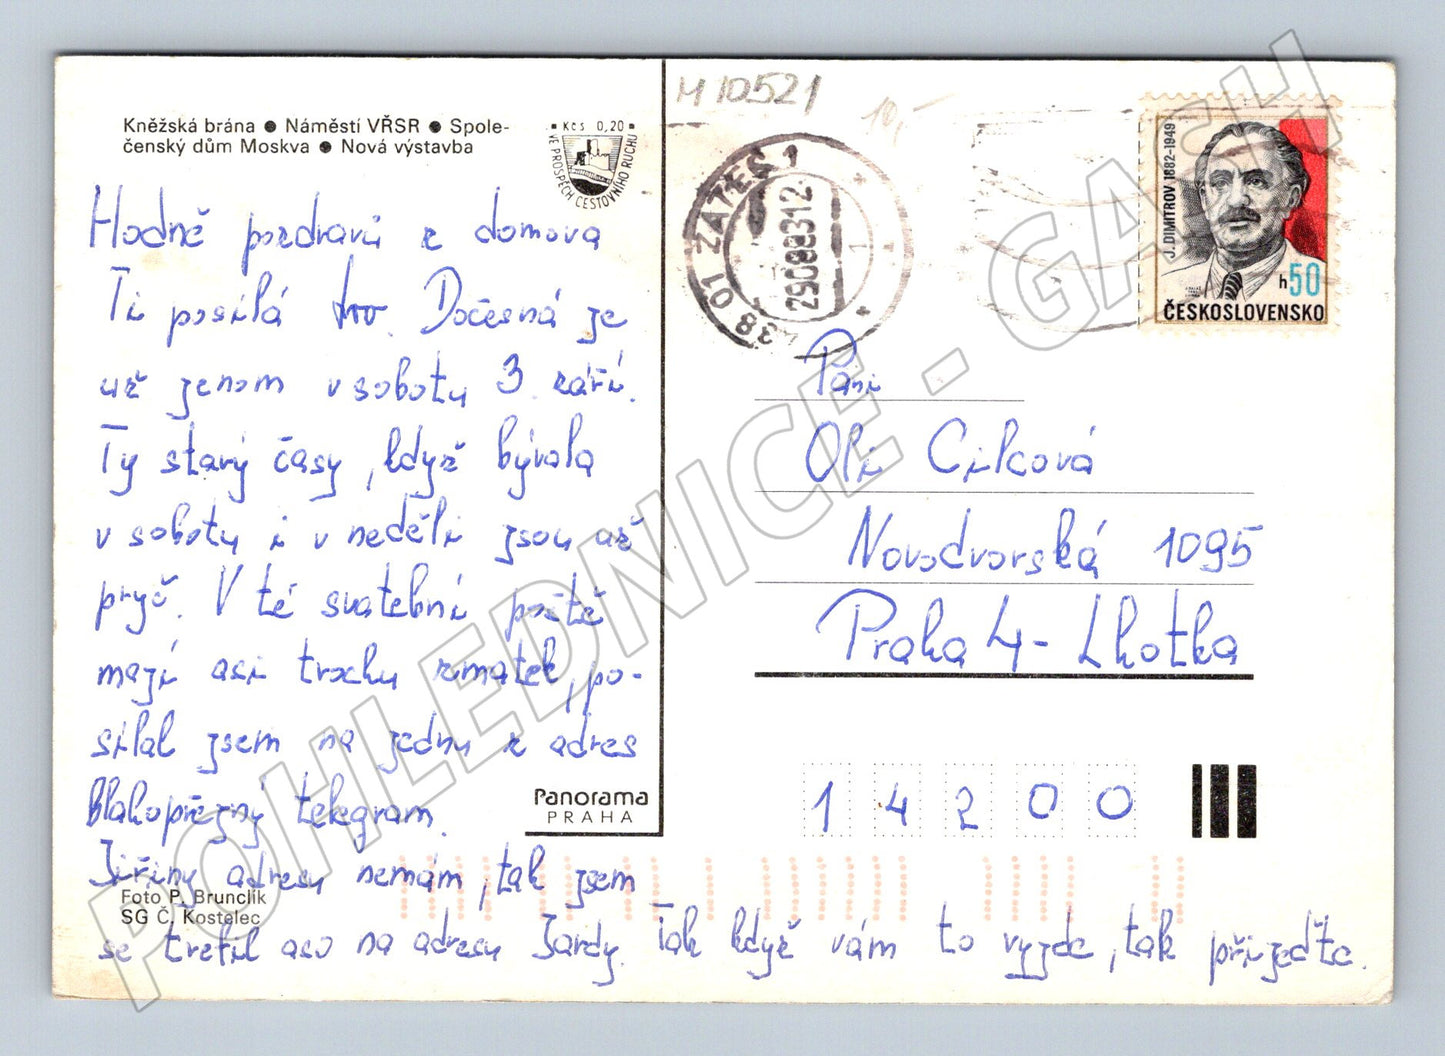 Kněžská brána ● Náměstí VŘSR ● Spole-
čenský dům Moskva ● Nová výstavba
Kčs 0,20
VE PROSPĚCH CESTOVNÍHO RUCHU
M 10521
10,-
438 01 ŽATEC 1
290883 12
J. DIMITROV 1882-1949
h50
ČESKOSLOVENSKO
Hodně pozdravů z domova
Ti posílá Ivo. Dočesná je
už jenom v sobotu 3. září.
Ty starý časy, když bývala
v sobotu i v neděli jsou až
pryč. V té svatební poště
mají asi trochu zmatek, po-
silal jsem na jednu z adres
blahopřejný telegram.
Jiřiny adresu nemám, tak jsem
se trefil aso na adresu Jardy. Tak když vám to vyjde, tak přijeďte.
Paní
Oli Cilková
Novodvorská 1095
Praha 4 - Lhotka
14200
Panorama
PRAHA
Foto P. Brunclík
SG Č. Kostelec
POHLEDNICE - GASH